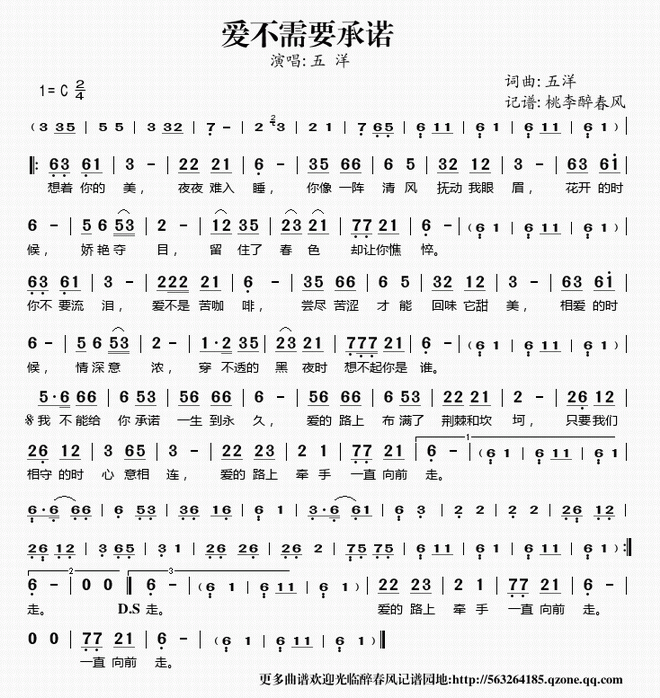 爱不需要承诺
演唱: 五 洋
1=C 2/4
词曲: 五洋
记谱: 桃李醉春风
(3 35 | 5 5 | 3 32 | 7 - | 2 23 | 2 1 | 7 65 | 6 11 | 6 1 | 6 11 | 6 1 )|
|: 63 61 | 3 - | 22 21 | 6 - | 35 66 | 6 5 | 32 12 | 3 - | 63 61 |
想着 你的 美, 夜夜 难入 睡, 你像 一阵 清 风 抚动 我眼 眉, 花开 的时
6 - | 5 6 53 | 2 - | 12 35 | 23 21 | 77 21 | 6 - | (6 1 | 6 11 | 6 1 )|
候, 娇 艳 夺 目, 留 住了 春 色 却让 你憔 悴。
63 61 | 3 - | 222 21 | 6 - | 35 66 | 6 5 | 32 12 | 3 - | 63 61 |
你不 要流 泪, 爱不是 苦咖 啡, 尝尽 苦涩 才 能 回味 它甜 美, 相爱 的时
6 - | 5 6 53 | 2 - | 1·2 35 | 23 21 | 777 21 | 6 - | (6 1 | 6 11 | 6 1 )|
候, 情 深 意 浓, 穿 不透的 黑 夜时 想不起 你是 谁。
5·6 66 | 6 53 | 56 66 | 6 - | 56 66 | 6 53 | 22 21 | 2 - | 26 12 |
我 不能给 你 承诺 一生 到永 久, 爱的 路上 布 满了 荆棘 和坎 坷, 只要 我们
26 12 | 3 65 | 3 - | 22 23 | 2 1 | 77 21 | 6 - | (6 1 | 6 11 | 6 1 |
1
相守 的时 心 意相 连, 爱的 路上 牵 手 一直 向前 走。
6·6 66 | 6 53 | 36 16 | 6 1 | 3·6 61 | 6 3 | 2 2 | 2 2 | 26 12 |
26 12 | 3 65 | 3 1 | 26 26 | 26 2 | 75 75 | 6 11 | 6 1 | 6 11 | 6 1 ):|
2
3
6 - | 0 0 | 6 - | (6 1 | 6 11 | 6 1 )| 22 23 | 2 1 | 77 21 | 6 - |
走。 D.S 走。 爱的 路上 牵 手 一直 向前 走。
0 0 | 77 21 | 6 - | (6 1 | 6 11 | 6 1 )|
一直 向前 走。
更多曲谱欢迎光临醉春风记谱园地:http://563264185.qzone.qq.com/